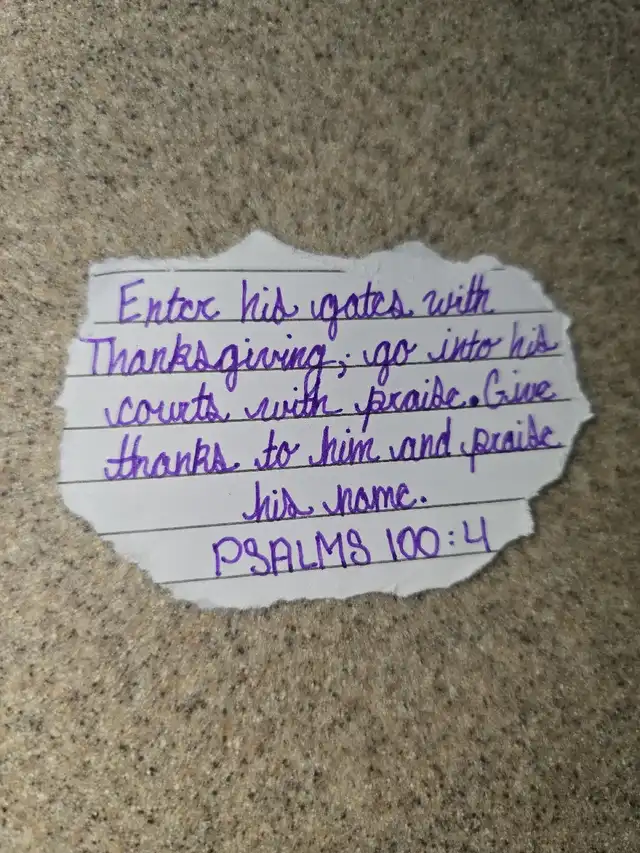 Enter his gates with
Thanksgiving; go into his
courts with praise. Give
thanks to him and praise
his name.
PSALMS 100:4